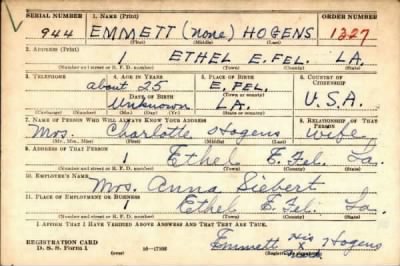 SERIAL NUMBER 1. NAME (Print) ORDER NUMBER
944 EMMETT (None) HOGENS 1327
(First) (Middle) (Last)
2. ADDRESS (Print)
1 ETHEL E. FEL. LA.
(Number and street or R. F. D. number) (Town) (County) (State)
3. TELEPHONE 4. AGE IN YEARS 5. PLACE OF BIRTH 6. COUNTRY OF CITIZENSHIP
about 25 E. FEL.
DATE OF BIRTH (Town or county)
Unknown LA. U.S.A.
(Mo.) (Day) (Yr.) (State or country)
7. NAME OF PERSON WHO WILL ALWAYS KNOW YOUR ADDRESS 8. RELATIONSHIP OF THAT PERSON
Mrs. Charlotte Hogens wife
(Mr., Mrs., Miss) (First) (Middle) (Last)
9. ADDRESS OF THAT PERSON
1 Ethel E. Fel. La.
(Number and street or R. F. D. number) (Town) (County) (State)
10. EMPLOYER'S NAME
Mrs. Anna Siebert
11. PLACE OF EMPLOYMENT OR BUSINESS
1 Ethel E. Fel. La.
(Number and street or R. F. D. number) (Town) (County) (State)
I AFFIRM THAT I HAVE VERIFIED ABOVE ANSWERS AND THAT THEY ARE TRUE.
REGISTRATION CARD
D. S. S. Form 1 (over) 16-17105
Emmett his X Hogens